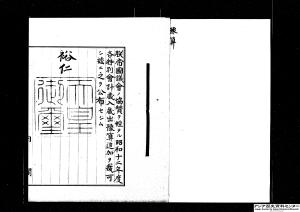 豫算
朕帝國議會ノ協贊ヲ經タル昭和十二年度
各特別會計歳入歳出豫算追加ヲ裁可
シ茲ニ之ヲ公布セシム
裕仁
天皇
御璽
内閣
アジア歴史資料センター